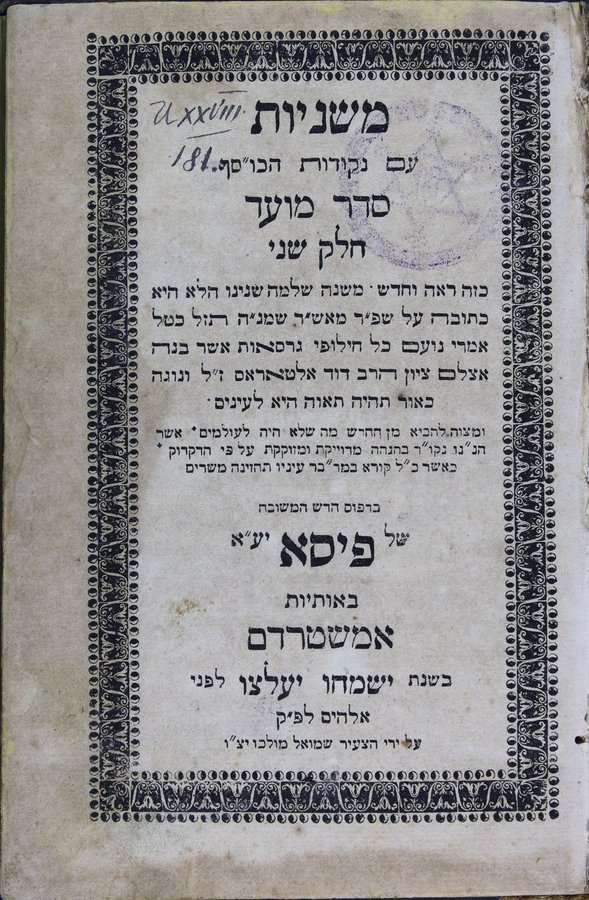 משניות
עם נקודות הכו"סף
סדר מועד
חלק שני
כזה ראה וחדש · משנה שלמה שנינו הלא היא
כתובה על שפ"ר מאש"ר שמנ"ה תזל כטל
אמרי נועם כל חילופי גרסאות אשר בנה
אצלם ציון הרב דוד אלטאראס ז"ל ונוגה
כאור תהיה תאוה היא לעינים ·
ומצוה להביא מן החדש מה שלא היה לעולמים * אשר
הנ"נו נקו"ר בהגהה מדוייקת ומזוקקת על פי הדקדוק *
כאשר כ"ל קורא במד"בר עיניו תחזינה משרים
בדפוס חדש המשובח
של פיסא יע"א
באותיות
אמשטרדם
בשנת ישמחו יעלצו לפני
אלהים לפ"ק
על ידי הצעיר שמואל מולכו יצ"ו
XXVIII
181.